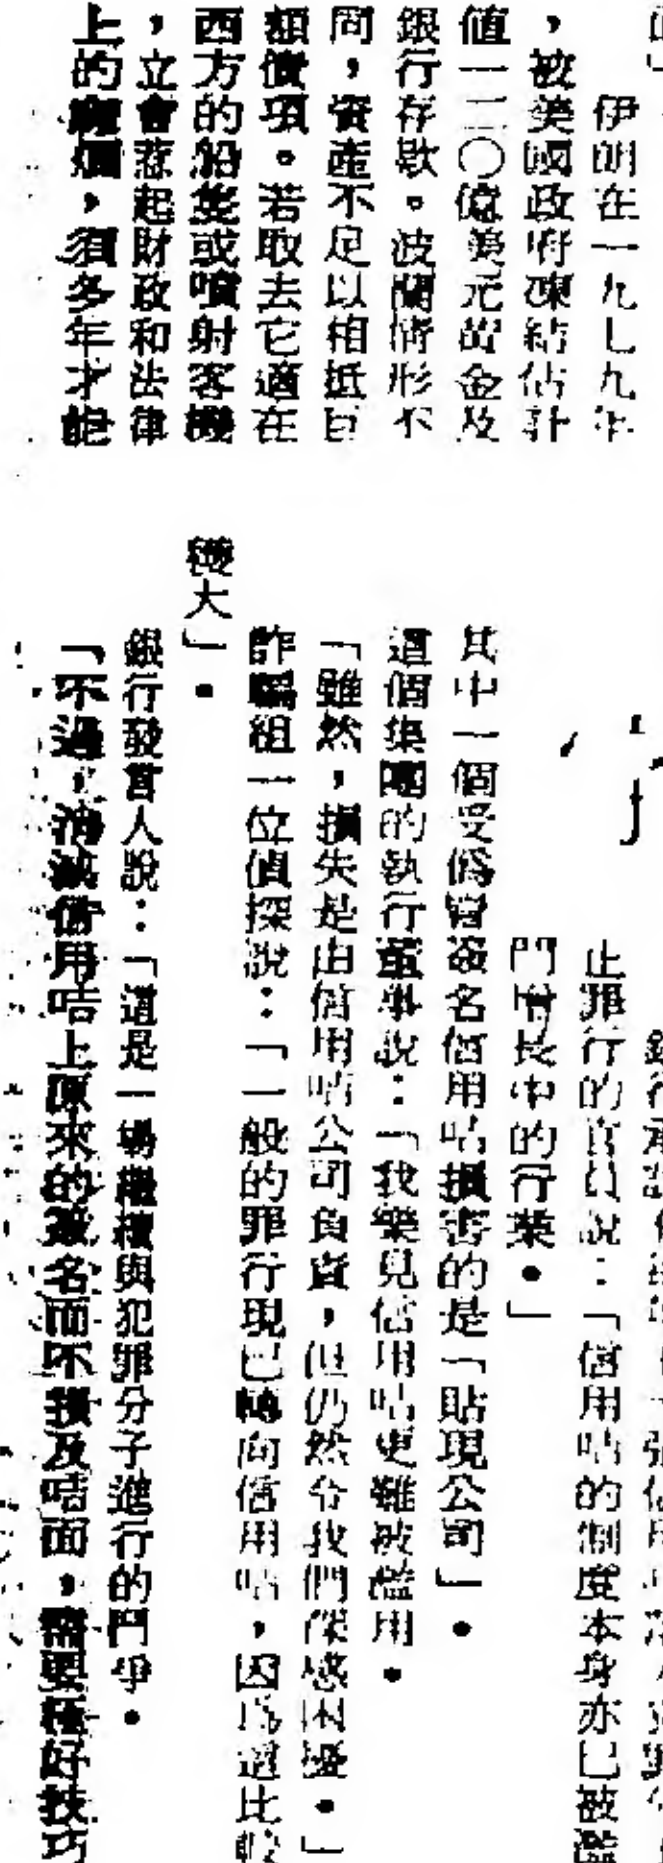 伊朗在一九七九年
，被美國政府凍結估計
值一二〇億美元黃金及
銀行存款。波蘭情形不
同，資產不足以相抵巨
額債項。若取去它適在
西方的船隻或噴射客機
，立會惹起財政和法律
上的麻煩，須多年才能
止罪行的官員說：「信用咭的制度本身亦已被濫
門增長中的行業。」
其中一個受僞冒簽名信用咭損害的是「貼現公司」。
這個集團的執行董事說：「我樂見信用咭更難被濫用。
「雖然，損失是由信用咭公司負責，但仍然令我們深感困擾。」
詐騙組一位偵探說：「一般的罪行現已轉向信用咭，因爲這比較
穩大」。
銀行發言人說：「這是一場繼續與犯罪分子進行的鬥爭。
「不過，消滅信用咭上原來的簽名而不損及咭面，需要極好技巧